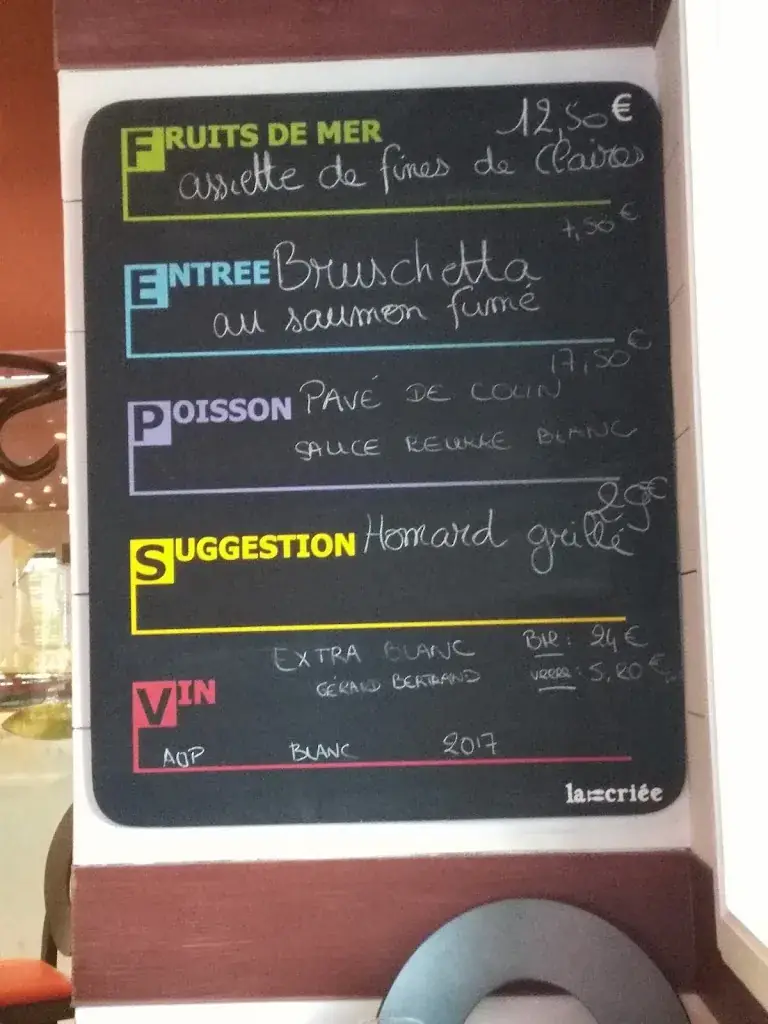 FRUITS DE MER 12,50€
assiette de fines de Claires
7,50€
ENTREE Bruschetta
au saumon fumé
17,50€
POISSON PAVÉ DE COLIN
SAUCE BEURRE BLANC
29€
SUGGESTION Homard grillé
EXTRA BLANC BTR: 24€
GÉRARD BERTRAND VERRE: 5,20€
VIN
AOP BLANC 2017
la criée